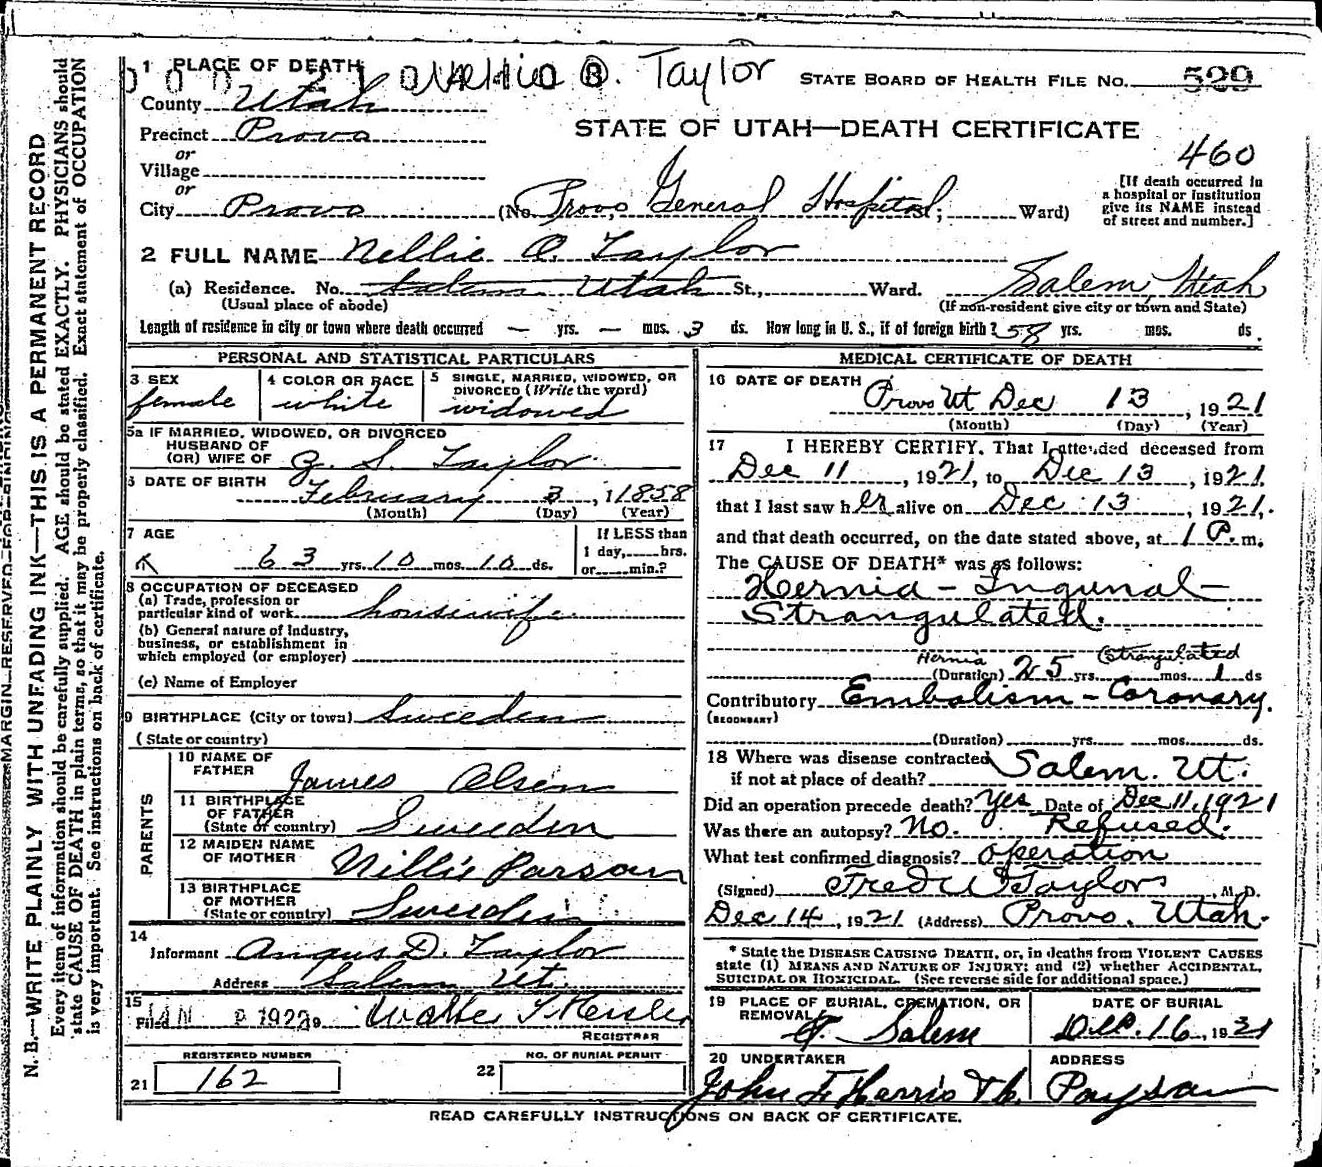 1 PLACE OF DEATH
B. Taylor
STATE BOARD OF HEALTH FILE NO. 529
County Utah
Precinct Provo
STATE OF UTAH—DEATH CERTIFICATE
460
or
Village
or
City Provo (No. Provo General Hospital; Ward)
[If death occurred in
a hospital or institution
give its NAME instead
of street and number.]
2 FULL NAME Nellie O. Taylor
(a) Residence. No. Salem Utah St., Ward. Salem, Utah
(Usual place of abode) (If non-resident give city or town and State)
Length of residence in city or town where death occurred — yrs. — mos. 3 ds. How long in U. S., if of foreign birth? 58 yrs. mos. ds.
PERSONAL AND STATISTICAL PARTICULARS
3 SEX
female
4 COLOR OR RACE
white
5 SINGLE, MARRIED, WIDOWED, OR
DIVORCED (Write the word)
widowed
5a IF MARRIED, WIDOWED, OR DIVORCED
HUSBAND OF
(OR) WIFE OF G. S. Taylor
6 DATE OF BIRTH
February 3, 1858
(Month) (Day) (Year)
7 AGE
63 yrs. 10 mos. 10 ds.
If LESS than
1 day, hrs.
or min.?
8 OCCUPATION OF DECEASED
(a) Trade, profession or
particular kind of work housewife
(b) General nature of Industry,
business, or establishment in
which employed (or employer)
(c) Name of Employer
9 BIRTHPLACE (City or town) Sweeden
(State or country)
PARENTS
10 NAME OF
FATHER James Olsen
11 BIRTHPLACE
OF FATHER
(State or country) Sweeden
12 MAIDEN NAME
OF MOTHER Nillis Parson
13 BIRTHPLACE
OF MOTHER
(State or country) Sweeden
14
Informant Angus D. Taylor
Address Salem Ut.
15
Filed JAN 2 1922 Walter T Hasler
REGISTRAR
REGISTERED NUMBER
21 162
NO. OF BURIAL PERMIT
22
MEDICAL CERTIFICATE OF DEATH
16 DATE OF DEATH
Provo Ut Dec 13, 1921
(Month) (Day) (Year)
17 I HEREBY CERTIFY, That I attended deceased from
Dec 11, 1921, to Dec 13, 1921,
that I last saw her alive on Dec 13, 1921,
and that death occurred, on the date stated above, at 1 P. m.
The CAUSE OF DEATH* was as follows:
Hernia - Ingunal -
Strangulated.
Hernia Strangulated
(Duration) 25 yrs. mos. 1 ds
Contributory Embalism - Coronary.
(SECONDARY)
(Duration) yrs. mos. ds.
18 Where was disease contracted
if not at place of death? Salem. Ut.
Did an operation precede death? Yes Date of Dec 11, 1921
Was there an autopsy? No. Refused.
What test confirmed diagnosis? Operation
(Signed) Fred W Taylor, M. D.
Dec 14, 1921 (Address) Provo. Utah.
* State the DISEASE CAUSING DEATH, or, in deaths from VIOLENT CAUSES
state (1) MEANS AND NATURE OF INJURY; and (2) whether ACCIDENTAL,
SUICIDAL OR HOMICIDAL. (See reverse side for additional space.)
19 PLACE OF BURIAL, CREMATION, OR
REMOVAL
Salem
DATE OF BURIAL
Dec. 16, 1921
20 UNDERTAKER
John F Harris
ADDRESS
Payson
READ CAREFULLY INSTRUCTIONS ON BACK OF CERTIFICATE.
MARGIN RESERVED FOR BINDING
N. B.—WRITE PLAINLY WITH UNFADING INK—THIS IS A PERMANENT RECORD
Every item of information should be carefully supplied. AGE should be stated EXACTLY. PHYSICIANS should
state CAUSE OF DEATH in plain terms, so that it may be properly classified. Exact statement of OCCUPATION
is very important. See instructions on back of certificate.